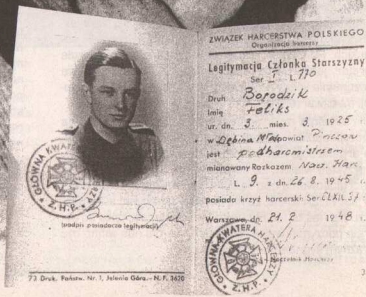 GŁÓWNA KWATERA
Z.H.P.
(podpis posiadacza legitymacji)
73 Druk. Państw. Nr. 1, Jelenia Góra.
ZWIĄZEK HARCERSTWA POLSKIEGO
Organizacja Harcerzy
Legitymacja Członka Starszyzny
Ser I L. 770
Druh Bogodzik
Imię Feliks
ur. dn. 3. mies. 3. 1925
w Dębina powiat Pinczów
jest podharcmistrzem
mianowany Rozkazem Nacz. Harc.
L. 9. z dn. 26. 8. 1945
posiada krzyż harcerski Ser.
Warszawa, dn. 21. 2 1948 r.
GŁÓWNA KWATERA HARCERZY
Z.H.P.